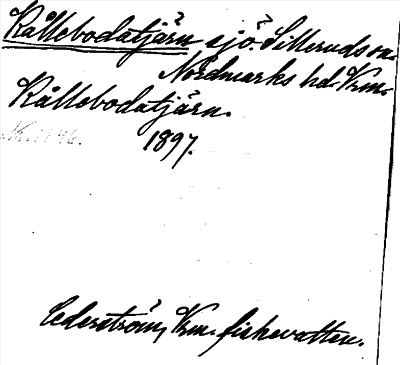 Kållebodatjärn sjö. Silleruds sn.
Nordmarks hd. Vrm.
Kållebodatjärn.
1897.
Cederström, Vrm. fiskevatten.